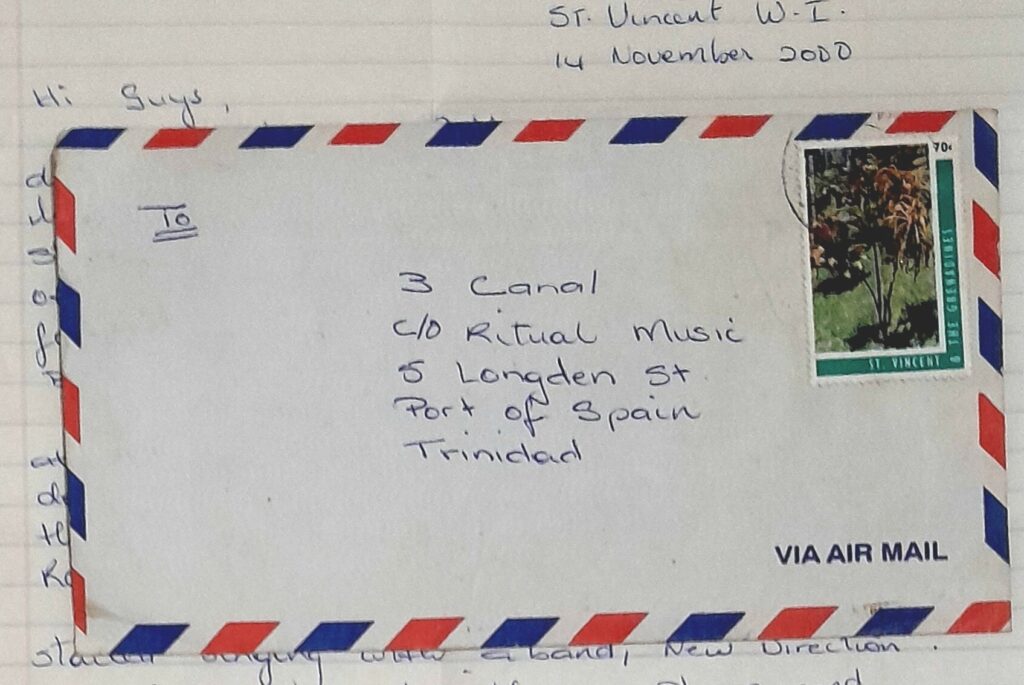 St. Vincent W.I.
14 November 2000
Hi Guys,
To
3 Canal
c/o Ritual Music
5 Longden St.
Port of Spain
Trinidad
70c
ST. VINCENT & THE GRENADINES
VIA AIR MAIL
singing with a band, New Direction.